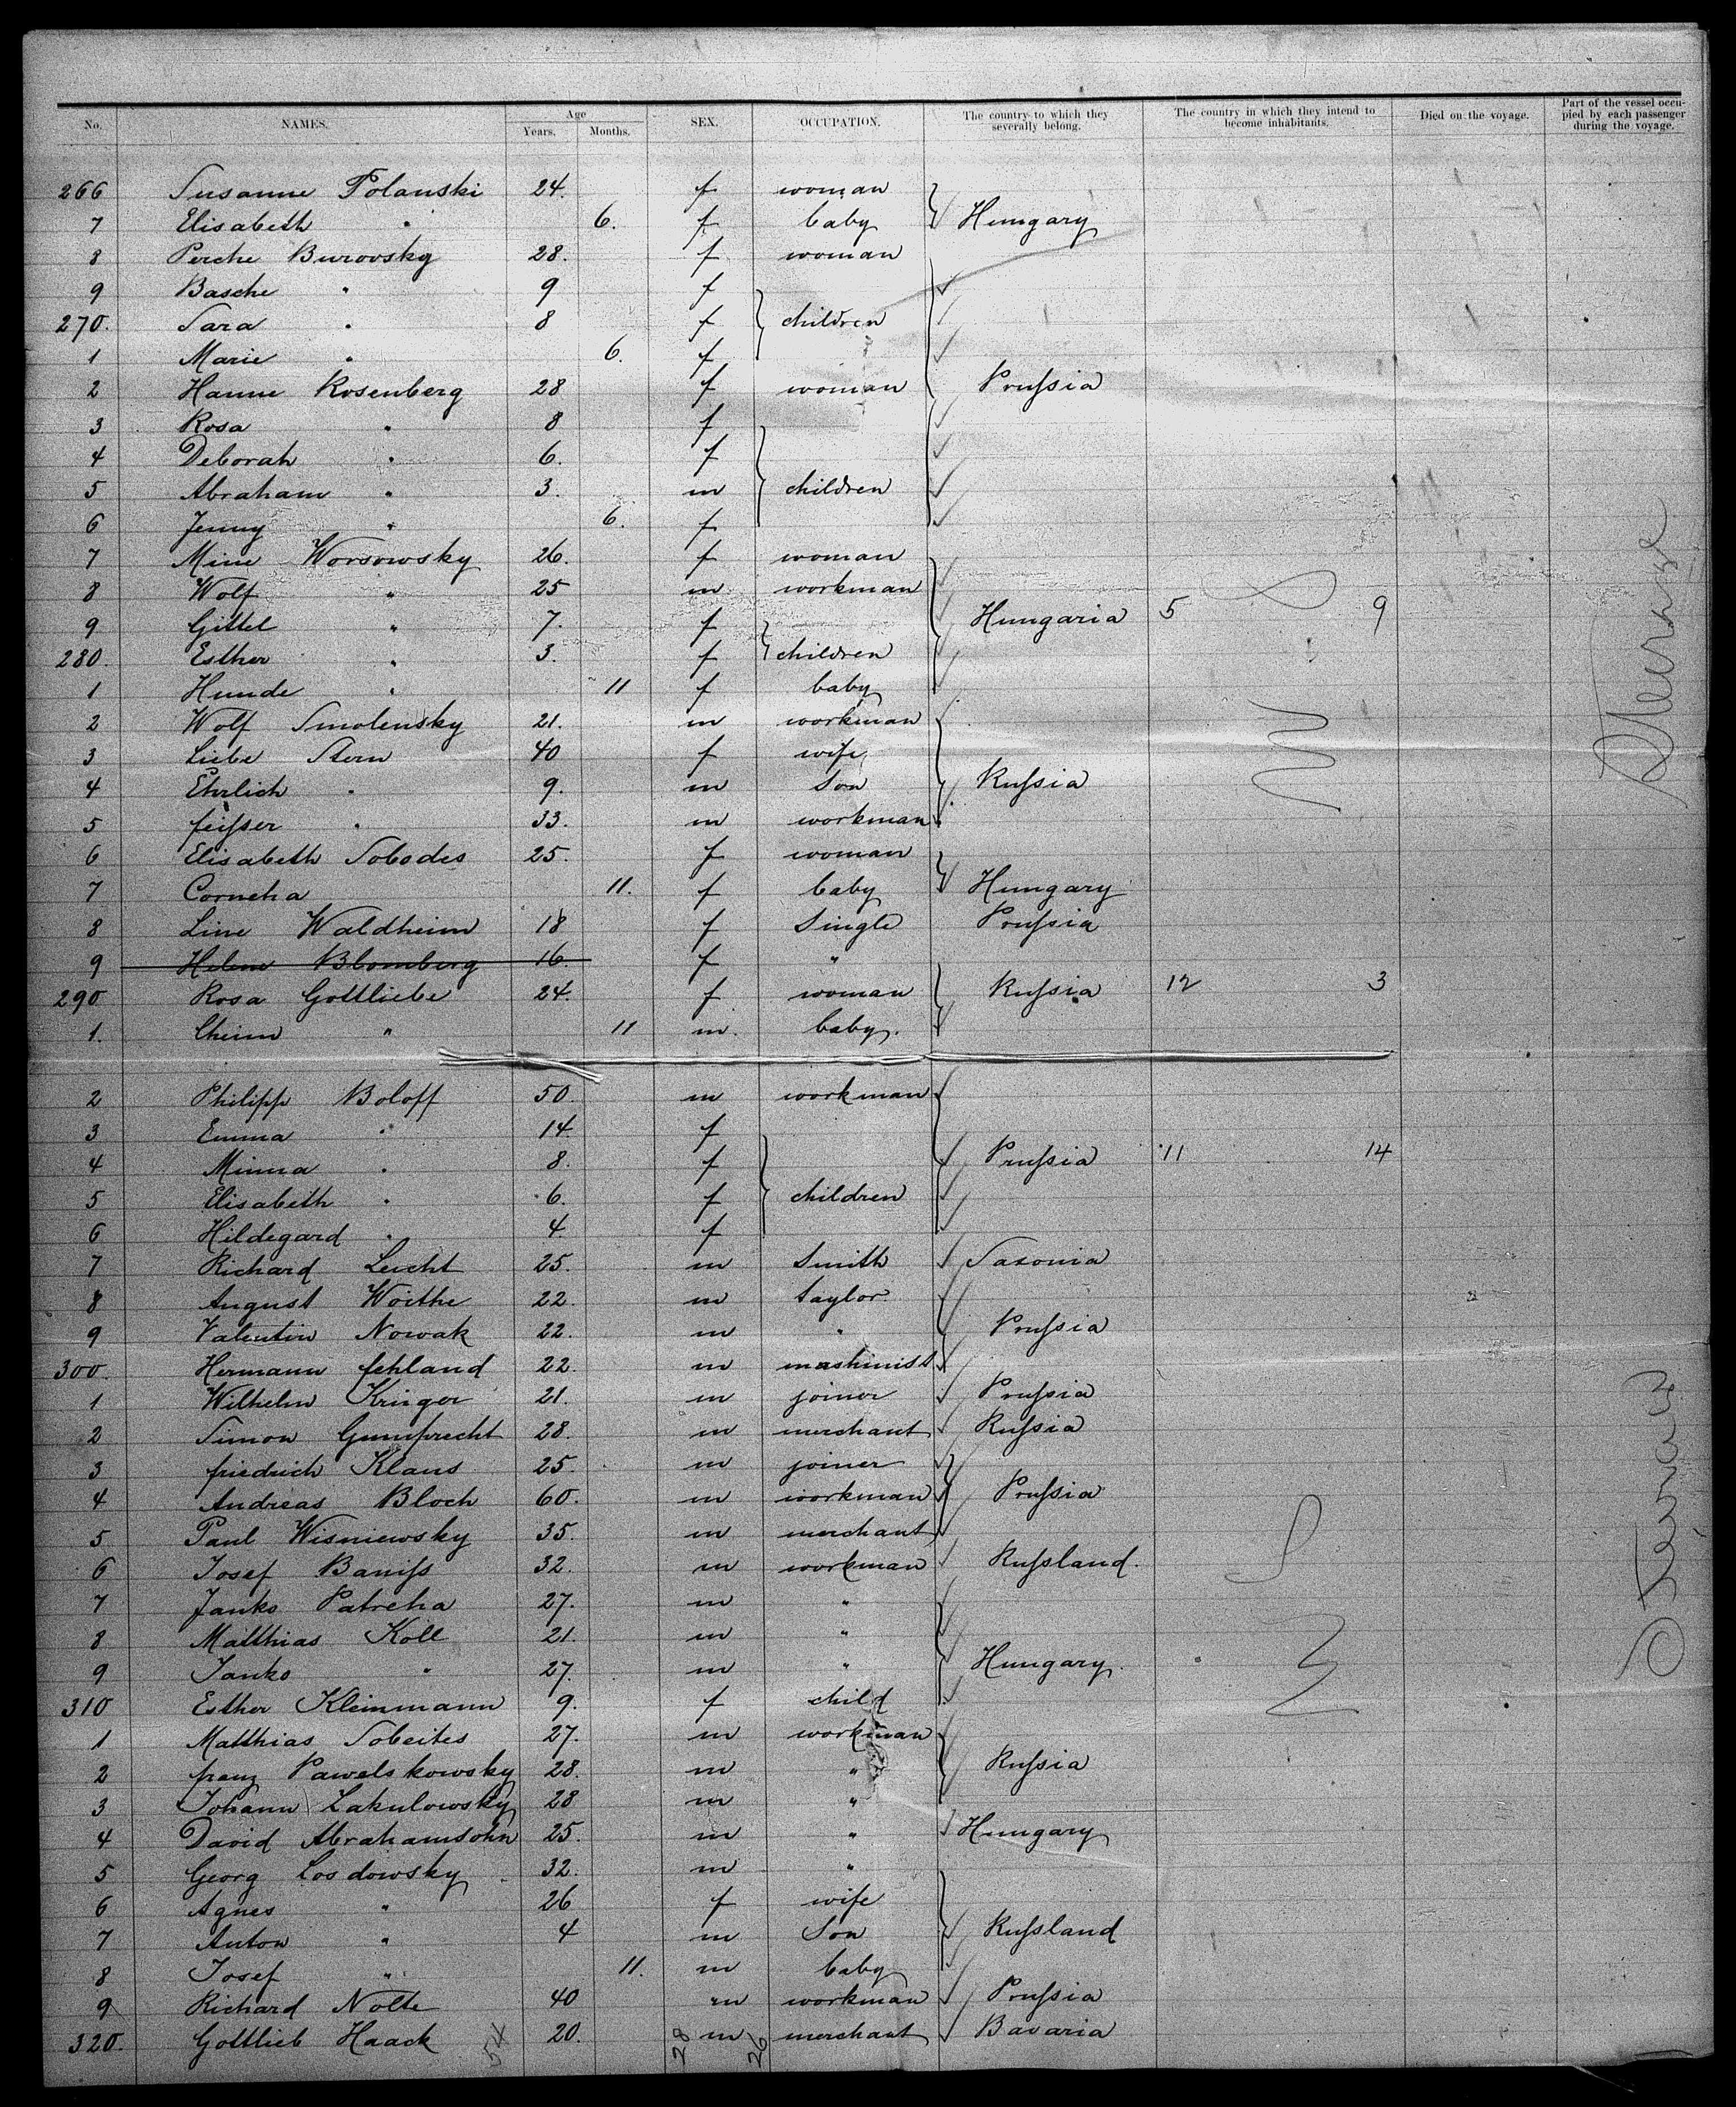 No. NAMES. Age Years. Months. SEX. OCCUPATION. The country to which they severally belong. The country in which they intend to become inhabitants. Died on the voyage. Part of the vessel occupied by each passenger during the voyage.
266 Susanne Polanski 24. f woman
7 Elisabeth " 6. f baby Hungary
8 Perche Burovsky 28. f woman
9 Basche " 9 f
270. Sara " 8 f children
1 Marie " 6. f
2 Hanne Rosenberg 28 f woman Prussia
3 Rosa " 8 f
4 Deborah " 6. f
5 Abraham " 3. m children
6 Jenny " 6. f
7 Mine Worsowsky 26. f woman
8 Wolf " 25 m workman
9 Gittel " 7. f Hungaria 5 9
280. Esther " 3. f children
1 Hunde " 11 f baby
2 Wolf Smolensky 21. m workman
3 Liebe Stern 40 f wife
4 Ehrlich " 9. m Son Russia
5 feisser " 33. m workman
6 Elisabeth Sobodes 25. f woman
7 Cornelia 11. f baby Hungary
8 Line Waldheim 18 f Single Prussia
9 Helene Blomberg 16. f "
290 Rosa Gottliebe 24. f woman Russia 12 3
1. Cheim " 11 m. baby.
2 Philipp Boloff 50. m workman
3 Emma " 14. f
4 Minna " 8. f Prussia 11 14
5 Elisabeth " 6. f children
6 Hildegard " 4. f
7 Richard Leicht 25. m Smith Saxonia
8 August Woithe 22. m taylor
9 Valentin Nowak 22. m " Prussia
300. Hermann fehland 22. m mashinist
1 Wilhelm Krüger 21. m joiner Prussia
2 Simon Gumprecht 28. m merchant Russia
3 friedrich Klaus 25. m joiner
4 Andreas Bloch 60. m workman Prussia
5 Paul Wisniewsky 35. m merchant
6 Josef Baniss 32. m workman Russland.
7 Janko Patreha 27. m "
8 Matthias Koll 21. m "
9 Janko " 27. m " Hungary.
310 Esther Kleinmann 9. f child
1 Matthias Sobeites 27. m workman
2 franz Pawelskowsky 28. m " Russia
3 Johann Lakulowsky 28 m "
4 David Abrahamsohn 25. m " Hungary
5 Georg Losdowsky 32. m "
6 Agnes " 26 f wife
7 Anton " 4 m Son Russland
8 Josef " 11. m baby
9 Richard Nolte 40 m workman Prussia
320. Gottlieb Haack 20. m merchant Bavaria
54 28 26